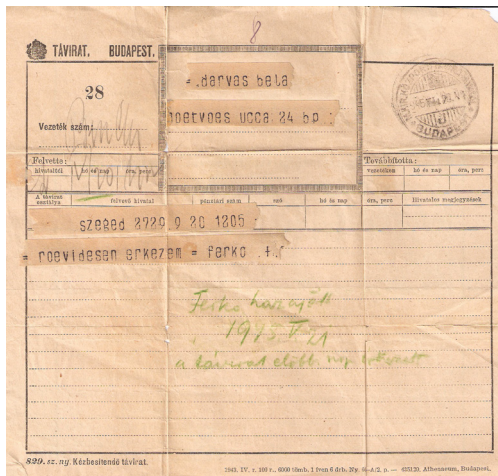 8
TÁVIRAT. BUDAPEST.
=.darvas bela
28
oetvoes ucca 24 bp
Vezeték szám:
BUDAPEST
Felvette:
Továbbította:
hivataltól
hó és nap
óra, perc
vezetéken
hó és nap
óra, perc
A távirat osztálya
felvevő hivatal
pénztári szám
szó
hó és nap
óra, perc
Hivatalos megjegyzések
szeged 2729 9 20 1205
= roevidesen erkezem = ferko .+.
Ferko hazajött
1945 V. 21
a távirat előbb
829. sz. ny. Kézbesítendő távirat.
1943. IV. r. 100 r., 6000 tömb. 1 íven 6 drb. Ny. 6—A/2. p. — Athenaeum, Budapest.